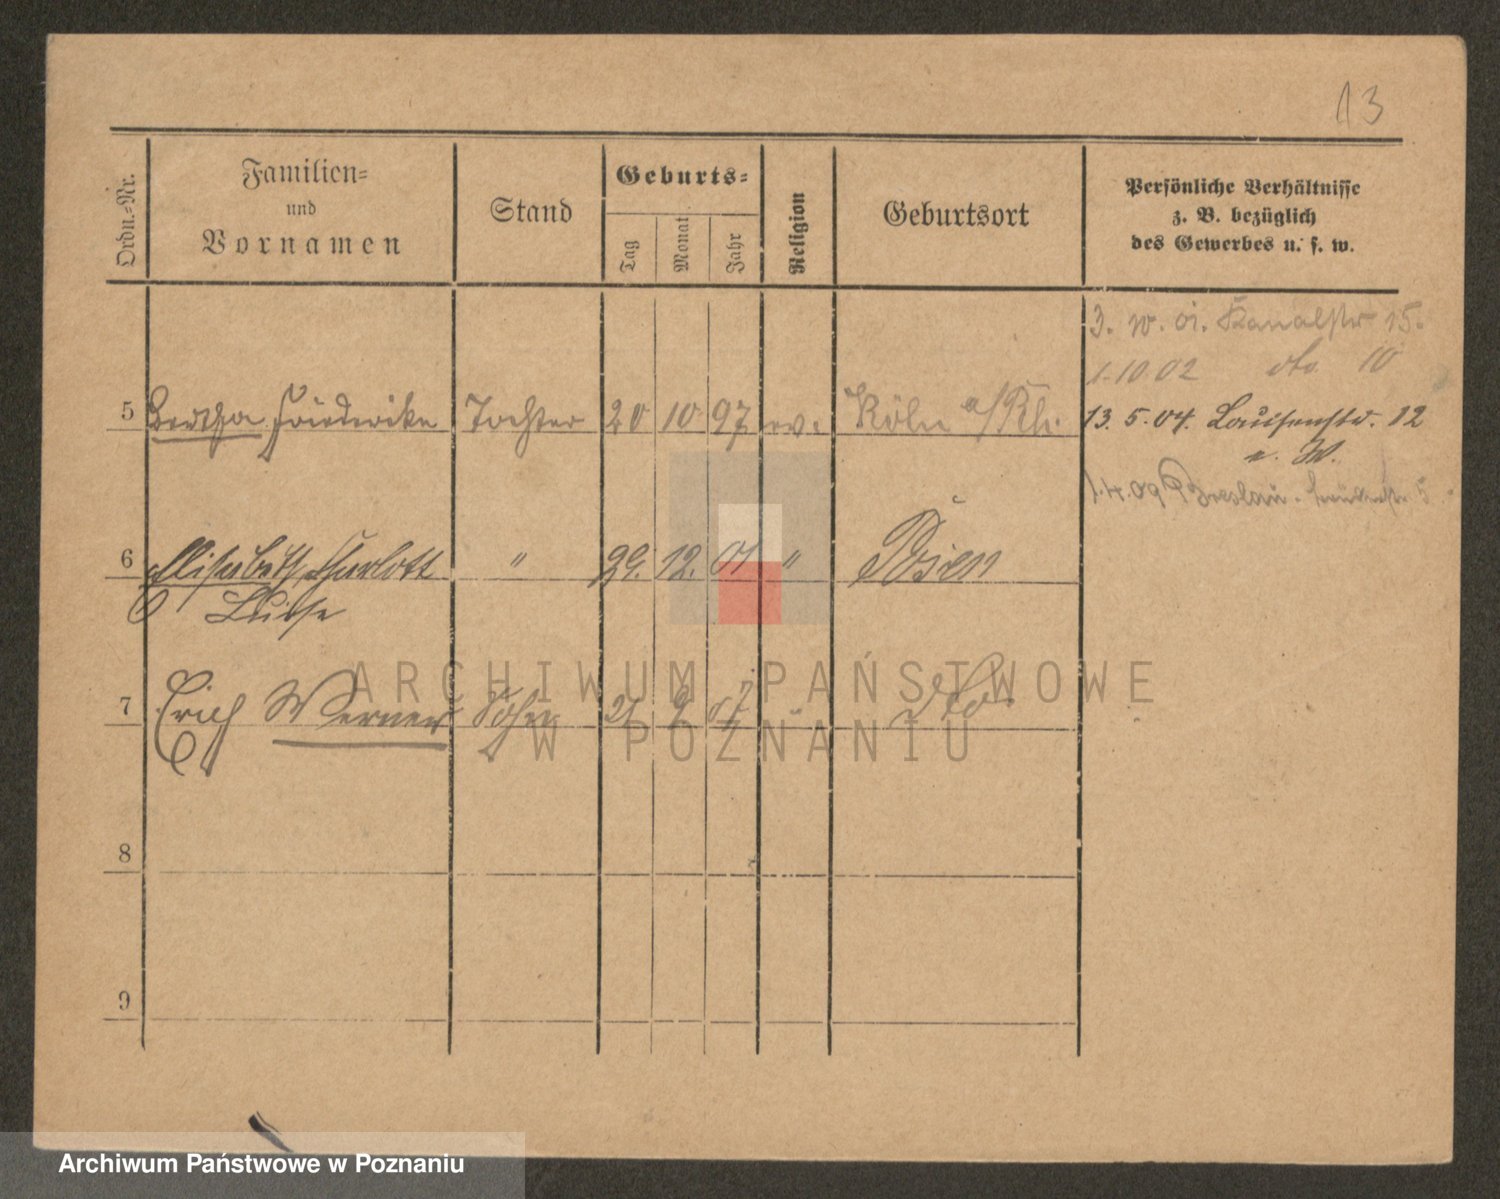 13
Ordn.-Nr.
Familien-
und
Vornamen
Stand
Geburts-
Tag
Monat
Jahr
Religion
Geburtsort
Persönliche Verhältnisse
z. B. bezüglich
des Gewerbes u. s. w.
3. w. 01. Kanalstr 15.
1.10.02 dto 10
5 Bertha Friederike Tochter 20 10 97 ev. Köln a/Rh. 13. 5. 04. Luisenstr. 12
n. W.
1.4.09 Breslau 5
6 Elisabeth Charlott " 29. 12. 01 " Posen
Luise
7 Erich Werner Sohn 21 9 07 " dto.
8
9
ARCHIWUM PAŃSTWOWE
W POZNANIU
Archiwum Państwowe w Poznaniu